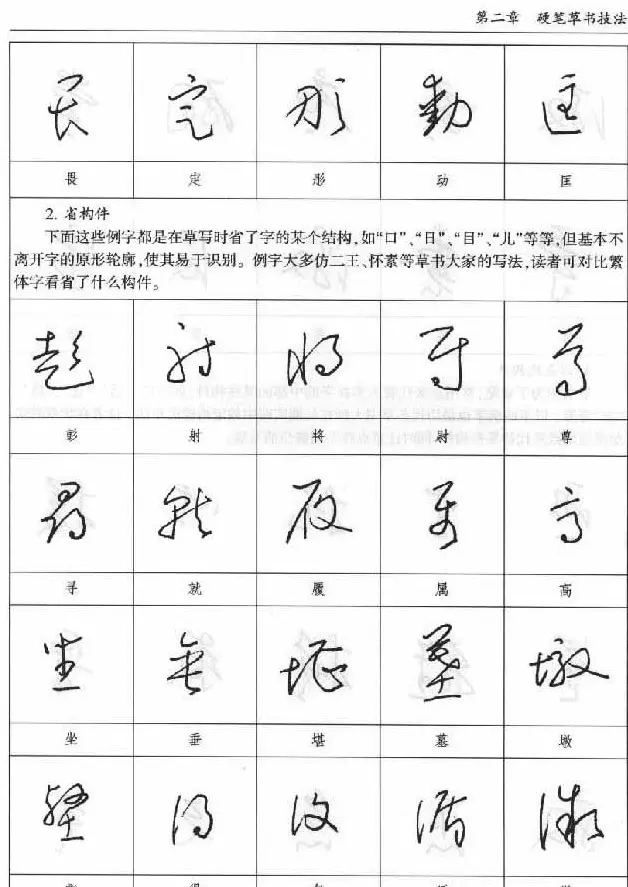 第二章 硬笔草书技法
畏 定 形 动 匡
2. 省构件
下面这些例字都是在草写时省了字的某个结构,如“口”、“日”、“目”、“儿”等等,但基本不
离开字的原形轮廓,使其易于识别。例字大多仿二王、怀素等草书大家的写法,读者可对比繁
体字看省了什么构件。
彭 射 将 尉 尊
寻 就 履 属 高
坐 垂 堪 墓 墩